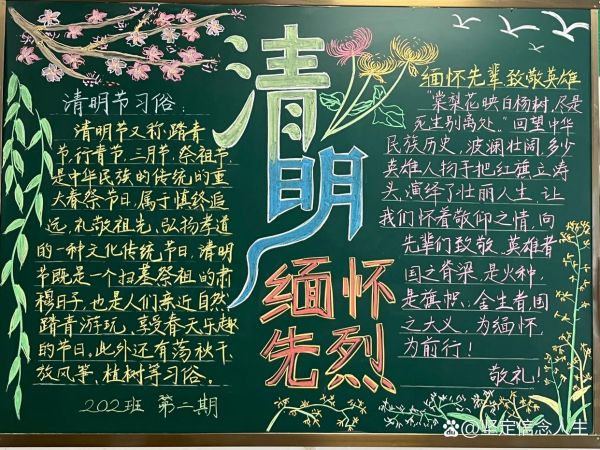 清明
缅怀
先烈
清明节习俗:
清明节又称踏青
节,行青节、三月节、祭祖节
是中华民族的传统的重
大春祭节日,属于慎终追
远,礼敬祖先、弘扬孝道
的一种文化传统节日,清明
节既是一个扫墓祭祖的肃
穆日子,也是人们亲近自然
踏青游玩、享受春天乐趣
的节日。此外还有荡秋千、
放风筝、植树等习俗。
202班 第二期
缅怀先辈 致敬英雄
“棠梨花映白杨树,尽是
死生别离处。”回望中华
民族历史,波澜壮阔,多少
英雄人物手把红旗立涛
头,演绎了壮丽人生,让
我们怀着敬仰之情,向
先辈们致敬,英雄者
国之脊梁,是火种,
是旗帜,舍生者国
之大义,为缅怀,
为前行!
敬礼!
@坚定信念人生